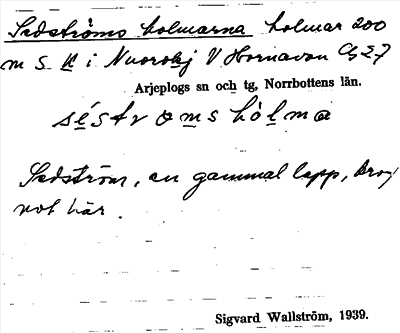 Sedströms holmarna holmar 200
m S K i Nuorokj V Hornavan Gg E7
Arjeplogs sn och tg, Norrbottens län.
séstroms hólma
Sedström, en gammal lapp, drog
not här.
Sigvard Wallström, 1939.